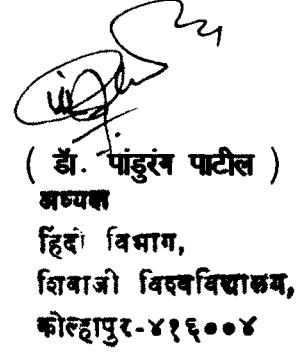 ( डॉ. पांडुरंग पाटील )
अध्यक्ष
हिंदी विभाग,
शिवाजी विश्वविद्यालय,
कोल्हापुर-४१६००४